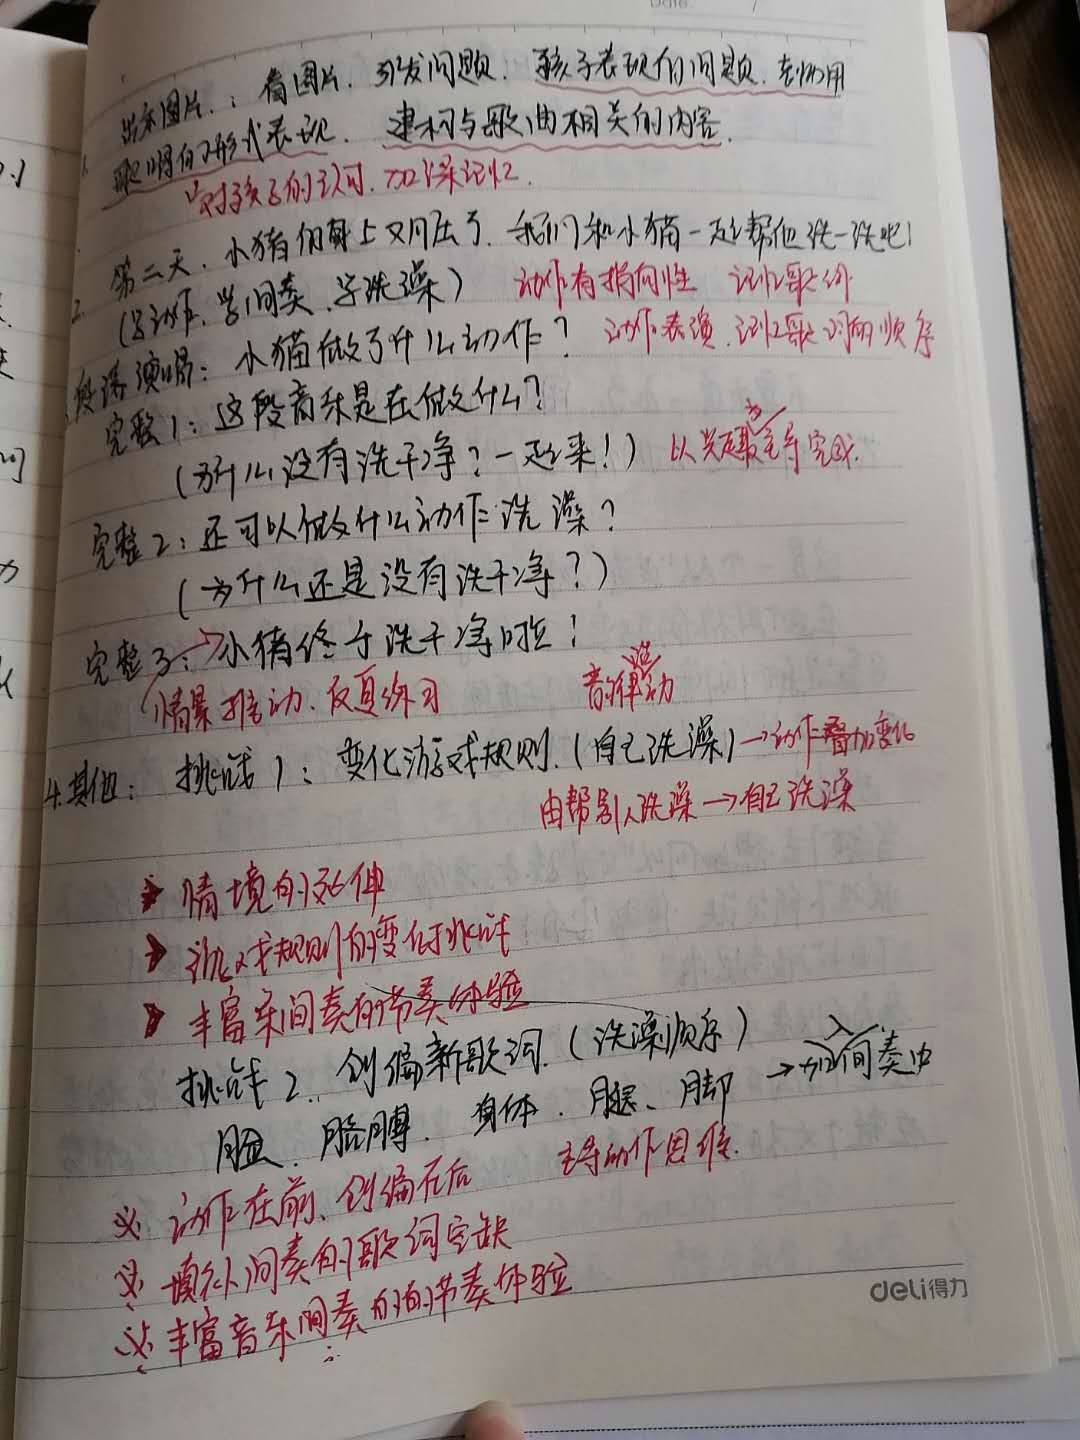 Date.
出示图片：看图片．引发问题．孩子表现的问题．老师用
1. 歌唱的形式表现．建构与歌曲相关的内容．
对孩子的认可．加深记忆．
2. 第二天．小猪们身上又脏了．我们和小猫一起帮他洗一洗吧！
（学动作、学间奏、学洗澡） 动作有指向性 记忆歌
3. 段落演唱：小猫做了什么动作？ 动作表演．记忆歌词的顺序
完整1：这段音乐是在做什么？
（为什么没有洗干净？一起来！） 以 为主导完成．
完整2：还可以做什么动作洗澡？
（为什么还是没有洗干净？）
完整3：→小猪终于洗干净啦！
情景推动、反复练习 音律活动
4.其他：挑战1：变化游戏规则．（自己洗澡）→动作叠加变化
由帮别人洗澡→自己洗澡
情境的延伸
游戏规则的变化挑战
丰富乐间奏的节奏体验
挑战2．创编新歌词．（洗澡顺序）
脸、胳膊．身体．腿、脚 →加入间奏中
动作在前、创编在后 主导动作思维．
填补间奏的歌词空缺
丰富音乐间奏的的节奏体验
deli得力